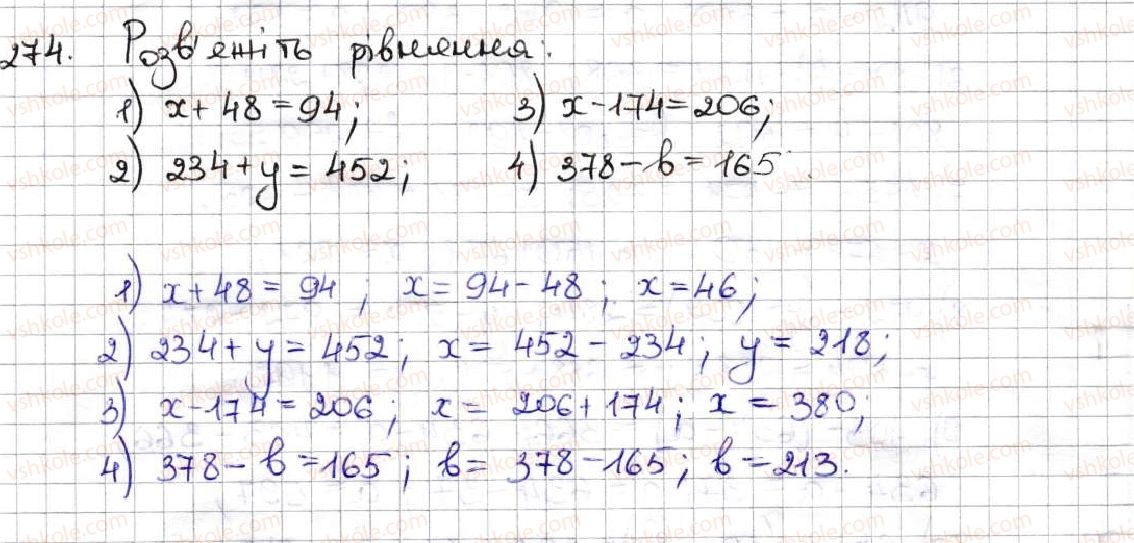 274. Розв'яжіть рівняння:
1) x + 48 = 94; 3) x - 174 = 206;
2) 234 + y = 452; 4) 378 - b = 165
1) x + 48 = 94; x = 94 - 48; x = 46;
2) 234 + y = 452; x = 452 - 234; y = 218;
3) x - 174 = 206; x = 206 + 174; x = 380;
4) 378 - b = 165; b = 378 - 165; b = 213.
vshkole.com